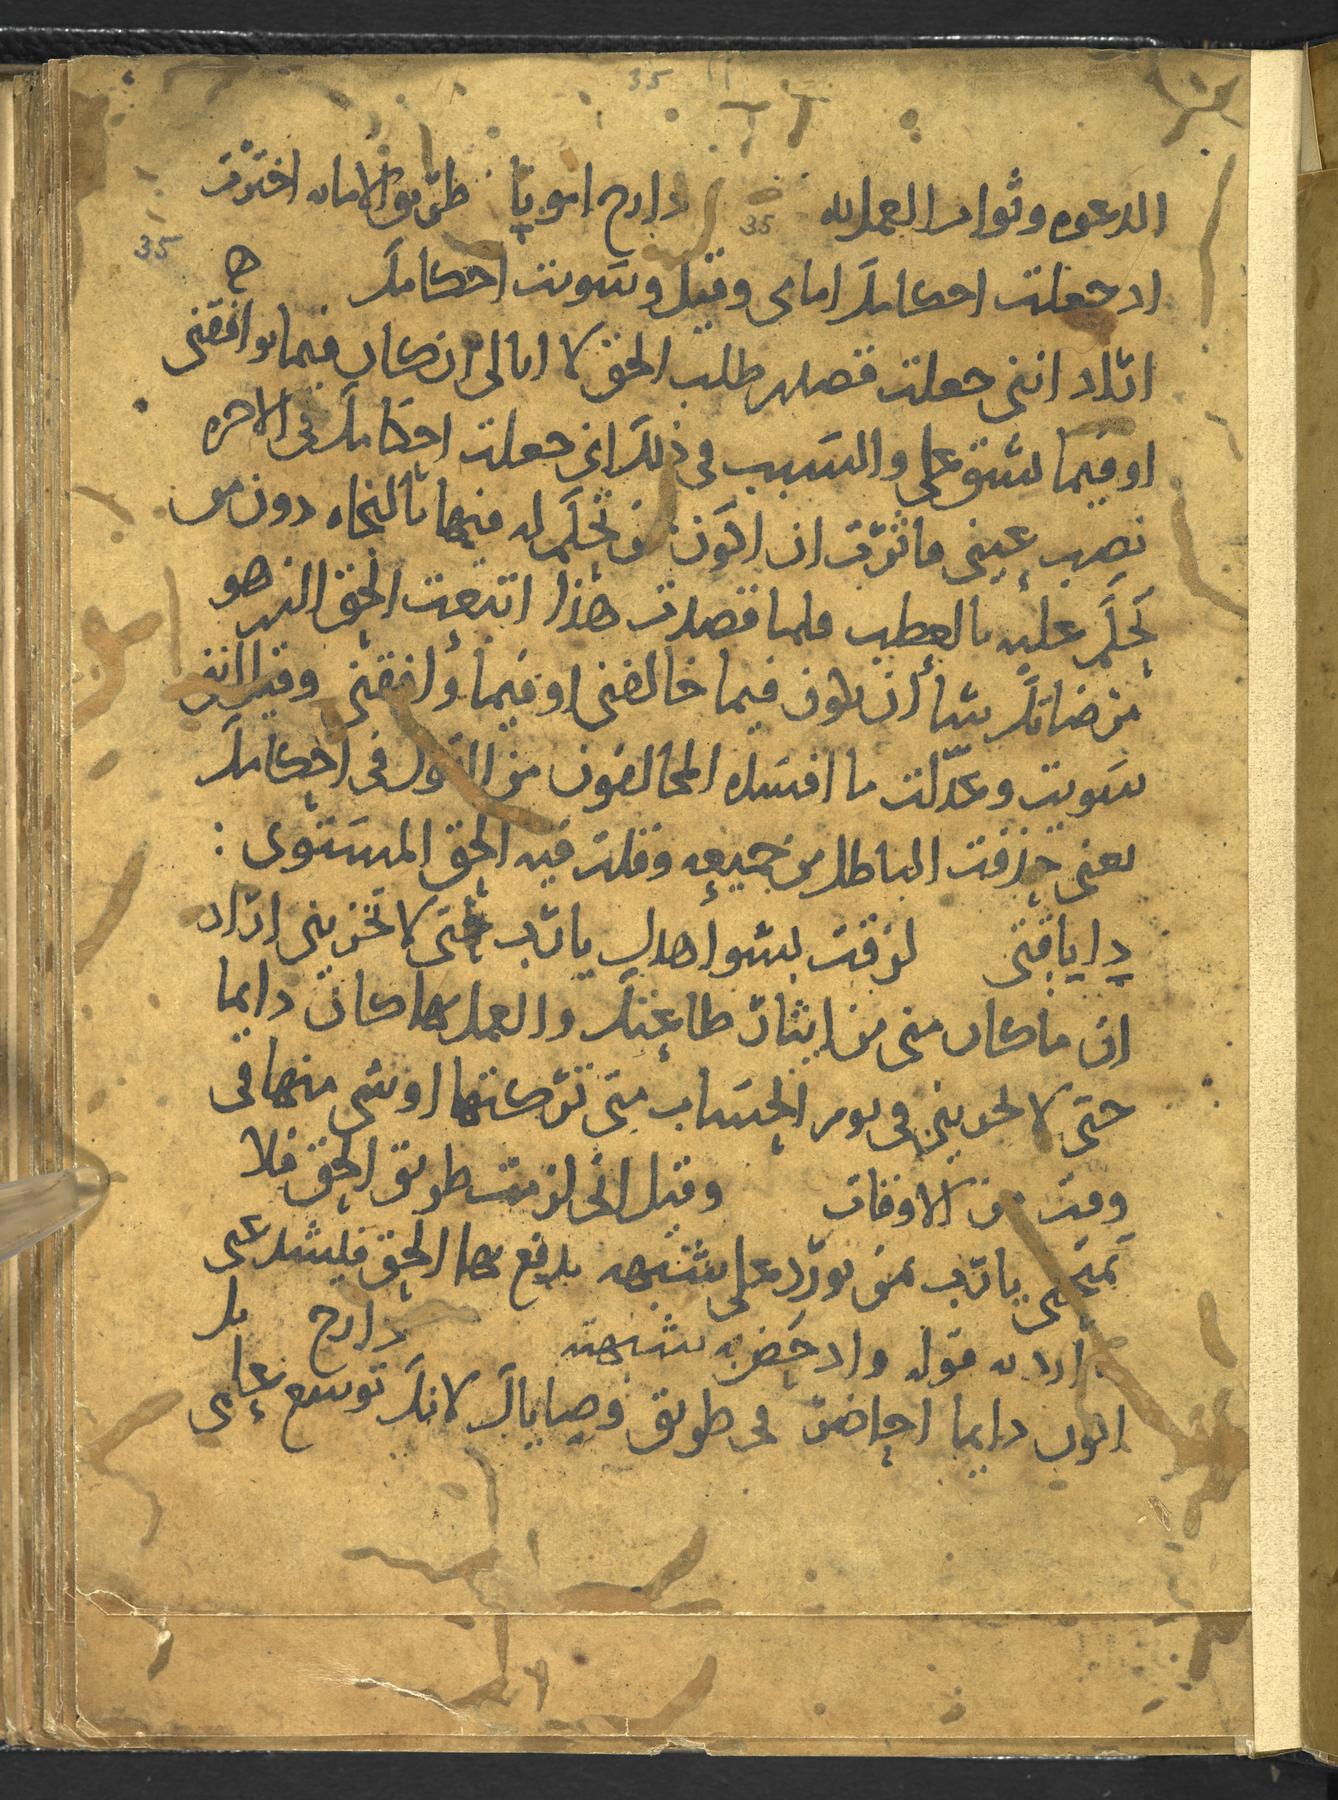 35
الدعوه وثوابـ العمل به دارح امونا طريق الامانه اخترت
35
35
اد جعلت احكامك امامى وقيل وسَويت احكامك ح
اراد اننى جعلت قصدى طلب الحق لا ابالى ان كان فيما يوافقنى
او فيما يشق على والسَبب فى ذلك انى جعلت احكامك فى الاخره
نصب عينى فاثرت ان اكون من تحكم له فيها بالنجاه دون من
تحكم عليه بالعطب فلما قصدت هذا اتبعت الحق الذى هو
من رضاك شا ان يكون فيما خالفنى او فيما وافقنى وقيل اننى
سَويت وعدّلت ما افسَده المخالفون من القول فى احكامك
يعنى حذفت الباطل من جميعه وقلت فيه الحق المستوى :
دايابقتى لزقت بشواهدك يا رب حتى لا تخزينى اراد
ان ما كان منى من ايثار طاعتك والعمل بها كان دايما
حتى لا تخزينى فى يوم الحسَاب متى تركتها او شى منها فى
وقت من الاوقات وقيل انى لزمت طريق الحق فلا
تمتحنى يا رب بمن يورد على شبهه يدفع بها الحق فيشد عنى
ارد به قوله وادحض به شبهته دارح
اكون دايما احاضر فى طريق وصاياك لانك توسع على